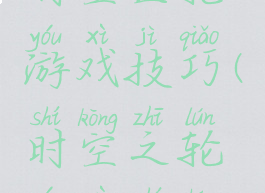 yóu xì jì qiǎo
游戏技巧(
shí kōng zhī lún
时空之轮